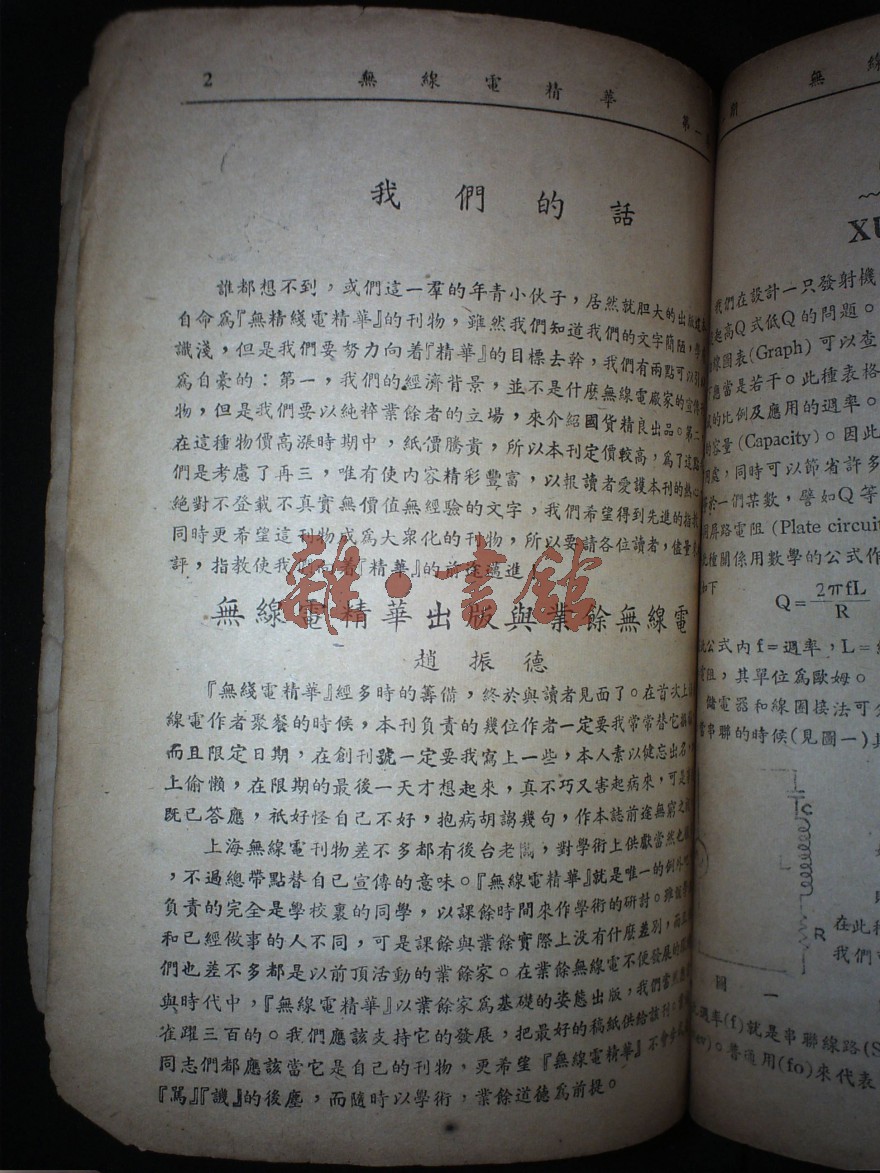 2 無線電精華 第一
我們的話
誰都想不到，或們這一羣的年青小伙子，居然就胆大的出版
自命爲『無精綫電精華』的刊物，雖然我們知道我們的文字簡陋，學
識淺，但是我們要努力向着『精華』的目標去幹，我們有兩點可以引
爲自豪的：第一，我們的經濟背景，並不是什麼無線電廠家的宣傳
物，但是我們要以純粹業餘者的立場，來介紹國貨精良出品。第二
在這種物價高漲時期中，紙價騰貴，所以本刊定價較高，爲了這點
們是考慮了再三，唯有使內容精彩豐富，以報讀者愛護本刊的熱心
絕對不登載不真實無價值無經驗的文字，我們希望得到先進的指教
同時更希望這刊物成爲大衆化的刊物，所以要請各位讀者，儘量
評，指教使我們向着『精華』的前途邁進！
雜·書館
無線電精華出版與業餘無線電
趙振德
『無綫電精華』經多時的籌備，終於與讀者見面了。在首次上海
線電作者聚餐的時候，本刊負責的幾位作者一定要我常常替它
而且限定日期，在創刊號一定要我寫上一些，本人素以健忘出名，
上偷懶，在限期的最後一天才想起來，真不巧又害起病來，可是
既已答應，祇好怪自己不好，抱病胡謅幾句，作本誌前途無窮之
上海無線電刊物差不多都有後台老闆，對學術上供獻當然也
，不過總帶點替自己宣傳的意味。『無線電精華』就是唯一的例外
負責的完全是學校裏的同學，以課餘時間來作學術的研討。雖
和已經做事的人不同，可是課餘與業餘實際上没有什麼差別，而
們也差不多都是以前頂活動的業餘家。在業餘無線電不便發展的
與時代中，『無線電精華』以業餘家爲基礎的姿態出版，我們當然
雀躍三百的。我們應該支持它的發展，把最好的稿紙供給該刊。
同志們都應該當它是自己的刊物，更希望『無線電精華』不會步
『罵』『譏』的後塵，而隨時以學術，業餘道德爲前提。
期 無線
XU
我們在設計一只發射機
起高Q式低Q的問題。
線圖表(Graph)可以查
應當是若干。此種表格
的比例及應用的週率。
的容量(Capacity)。因此
處，同時可以節省許多
於一們某數，譬如Q等
屏路電阻(Plate circuit
種關係用數學的公式作
如下
Q=2πfL/R
此公式內f=週率，L=
電阻，其單位爲歐姆。
儲電器和線圈接法可分
當串聯的時候(見圖一)其
C
R
在此種
我們
圖一
週率(f)就是串聯線路(S
)。普通用(fo)來代表